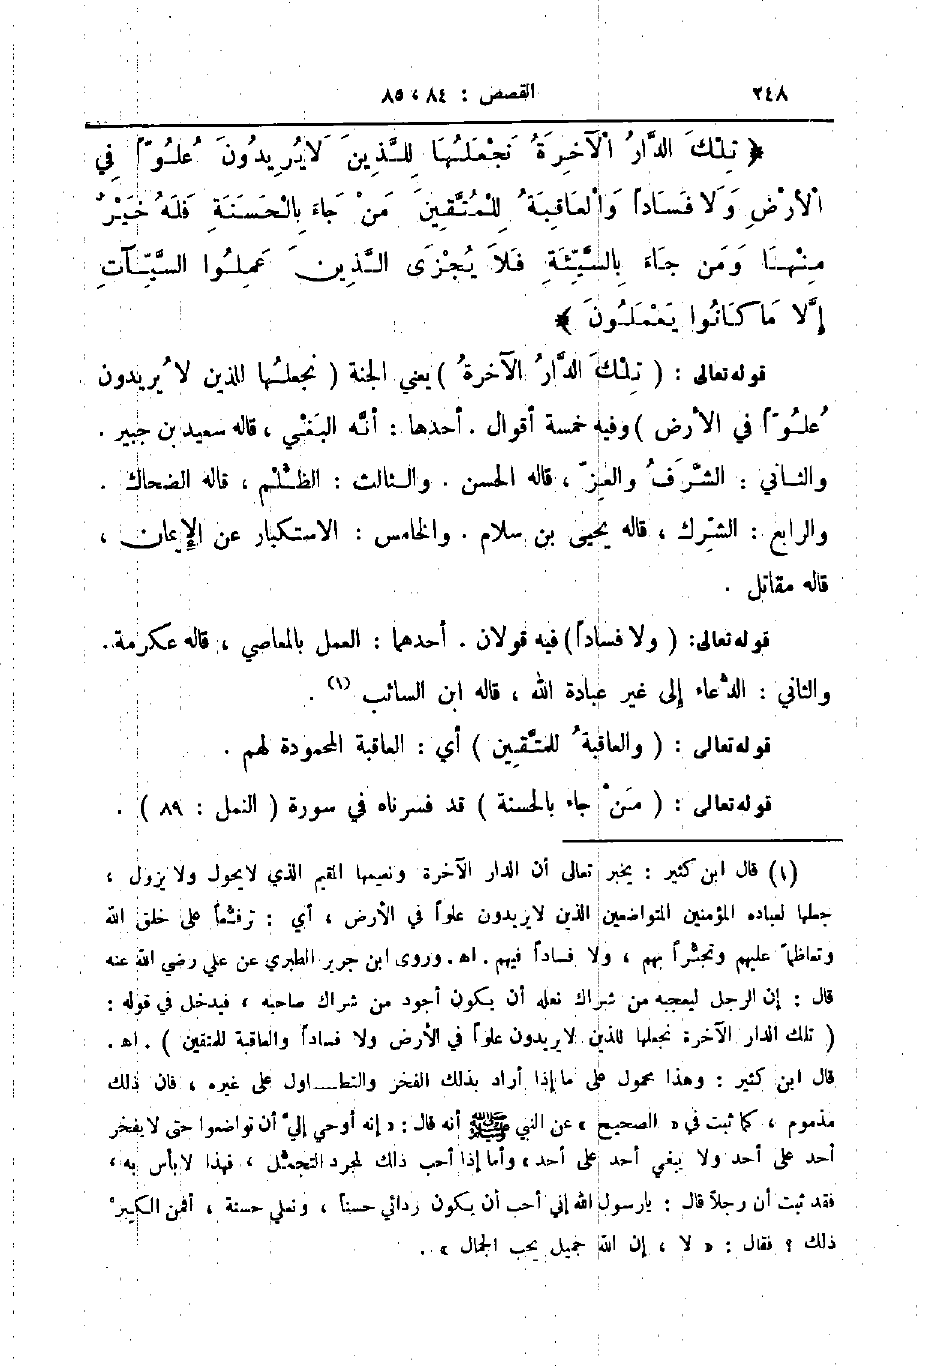 ٢٤٨ القصص : ٨٤ ، ٨٥
﴿ تِلْكَ الدَّارُ الْآخِرَةُ نَجْعَلُهَا لِلَّذِينَ لَا يُرِيدُونَ عُلُوّاً فِي
الْأَرْضِ وَلَا فَسَاداً وَالْعَاقِبَةُ لِلْمُتَّقِينَ مَنْ جَاءَ بِالْحَسَنَةِ فَلَهُ خَيْرٌ
مِنْهَا وَمَن جَاءَ بِالسَّيِّئَةِ فَلَا يُجْزَى الَّذِينَ عَمِلُوا السَّيِّآتِ
إِلَّا مَا كَانُوا يَعْمَلُونَ ﴾
قوله تعالى : ( تِلْكَ الدَّارُ الآخرةُ ) يعني الجنة ( نجعلُها للذين لا يُريدون
عُلُوّاً في الأرض ) وفيه خمسة أقوال . أحدها : أنَّه البَغْي ، قاله سعيد بن جبير .
والثاني : الشَّرَفُ والعِزّ ، قاله الحسن . والثالث : الظُّلْم ، قاله الضحاك .
والرابع : الشِّرك ، قاله يحيى بن سلام . والخامس : الاستكبار عن الإيمان ،
قاله مقاتل .
قوله تعالى: ( ولا فساداً ) فيه قولان . أحدهما : العمل بالمعاصي ، قاله عكرمة .
والثاني : الدُّعاء إلى غير عبادة الله ، قاله ابن السائب (١) .
قوله تعالى : ( والعاقبةُ للمتَّقِين ) أي : العاقبة المحمودة لهم .
قوله تعالى : ( مَنْ جاء بالحسنة ) قد فسرناه في سورة ( النمل : ٨٩ ) .
(١) قال ابن كثير : يخبر تعالى أن الدار الآخرة ونعيمها المقيم الذي لا يحول ولا يزول ،
جعلها لعباده المؤمنين المتواضعين الذين لا يريدون علواً في الأرض ، أي : ترفُّعاً على خلق الله
وتعاظماً عليهم وتجبُّراً بهم ، ولا فساداً فيهم . اهـ . وروى ابن جرير الطبري عن علي رضي الله عنه
قال : إن الرجل ليعجبه من شراك نعله أن يكون أجود من شراك صاحبه ، فيدخل في قوله :
( تلك الدار الآخرة نجعلها للذين لا يريدون علواً في الأرض ولا فساداً والعاقبة للمتقين ) . اهـ .
قال ابن كثير : وهذا محمول على ما إذا أراد بذلك الفخر والتطـــاول على غيره ، فان ذلك
مذموم ، كما ثبت في « الصحيح » عن النبي ﷺ أنه قال : « إنه أوحي إليّ أن تواضعوا حتى لا يفخر
أحد على أحد ولا يبغي أحد على أحد » وأما إذا أحب ذلك لمجرد التجمُّل ، فهذا لا بأس به ،
فقد ثبت أن رجلاً قال : يا رسول الله إني أحب أن يكون ردائي حسناً ، ونعلي حسنة ، أفمن الكِبْر
ذلك ؟ فقال : « لا ، إن الله جميل يحب الجمال » .